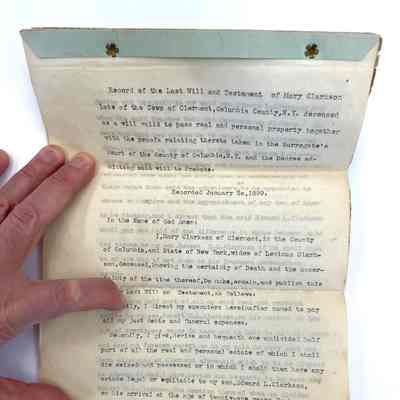 Record of the Last Will and Testament of Mary Clarkson
late of the Town of Clermont, Columbia County, N.Y. deceased
as a will valid to pass real and personal property together
with the proofs relating thereto taken in the Surrogate's
Court of the County of Columbia, N.Y. and the Decree ad-
mitting said will to Probate.
Recorded January 3d, 1899.
In the Name of God Amen:
I, Mary Clarkson of Clermont, in the County
of Columbia, and State of New York, widow of Levinus Clark-
son, deceased, knowing the certainty of Death and the uncer-
tainty of the time thereof, Do make, ordain, and publish this
Last Will or Testament, as follows:
I direct my executors hereinafter named to pay
all my just debts and funeral expenses.
Secondly, I give, devise and bequeath one undivided half
part of all the real and personal estate of which I shall
die seized and possessed or in which I shall than have any
estate legal or equitable to my son, Edward L. Clarkson,
on his arrival at the age of